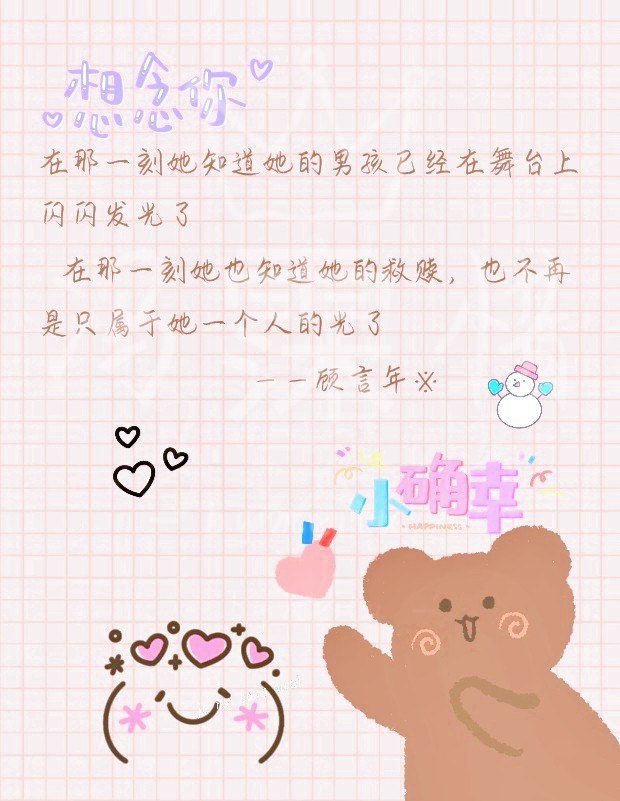 想念你
在那一刻她知道她的男孩已经在舞台上
闪闪发光了
在那一刻她也知道她的救赎，也不再
是只属于她一个人的光了
——顾言年※
小确幸
·HAPPINESS·